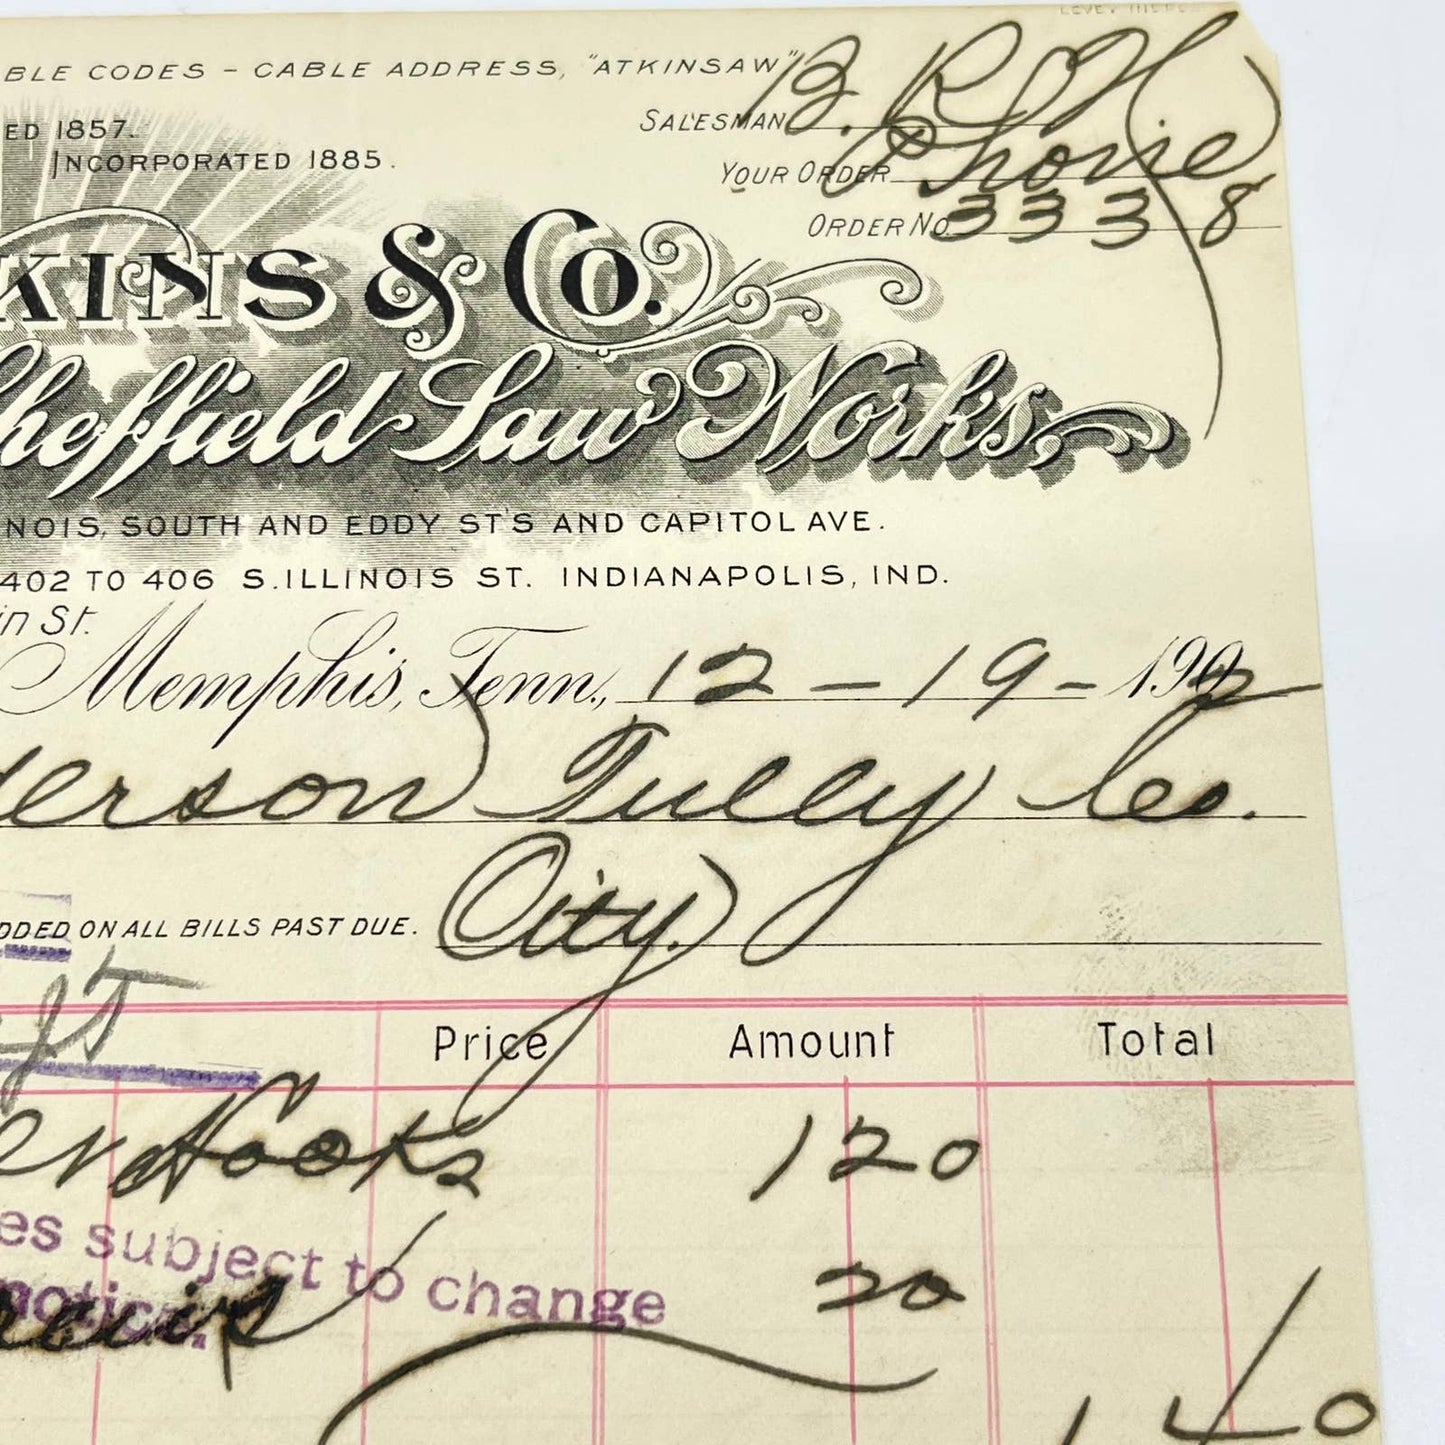 BLE CODES - CABLE ADDRESS, "ATKINSAW"
SALESMAN B. R.
ED 1857.
INCORPORATED 1885.
YOUR ORDER Phone
ORDER NO. 3338
KINS & Co.
Sheffield Saw Works,
NOIS, SOUTH AND EDDY ST'S AND CAPITOL AVE.
402 TO 406 S. ILLINOIS ST. INDIANAPOLIS, IND.
in St.
Memphis, Tenn., 12-19-1902
derson Tully Co.
DDED ON ALL BILLS PAST DUE. City.
Price Amount Total
Hooks 120
es subject to change
notice.
20
140